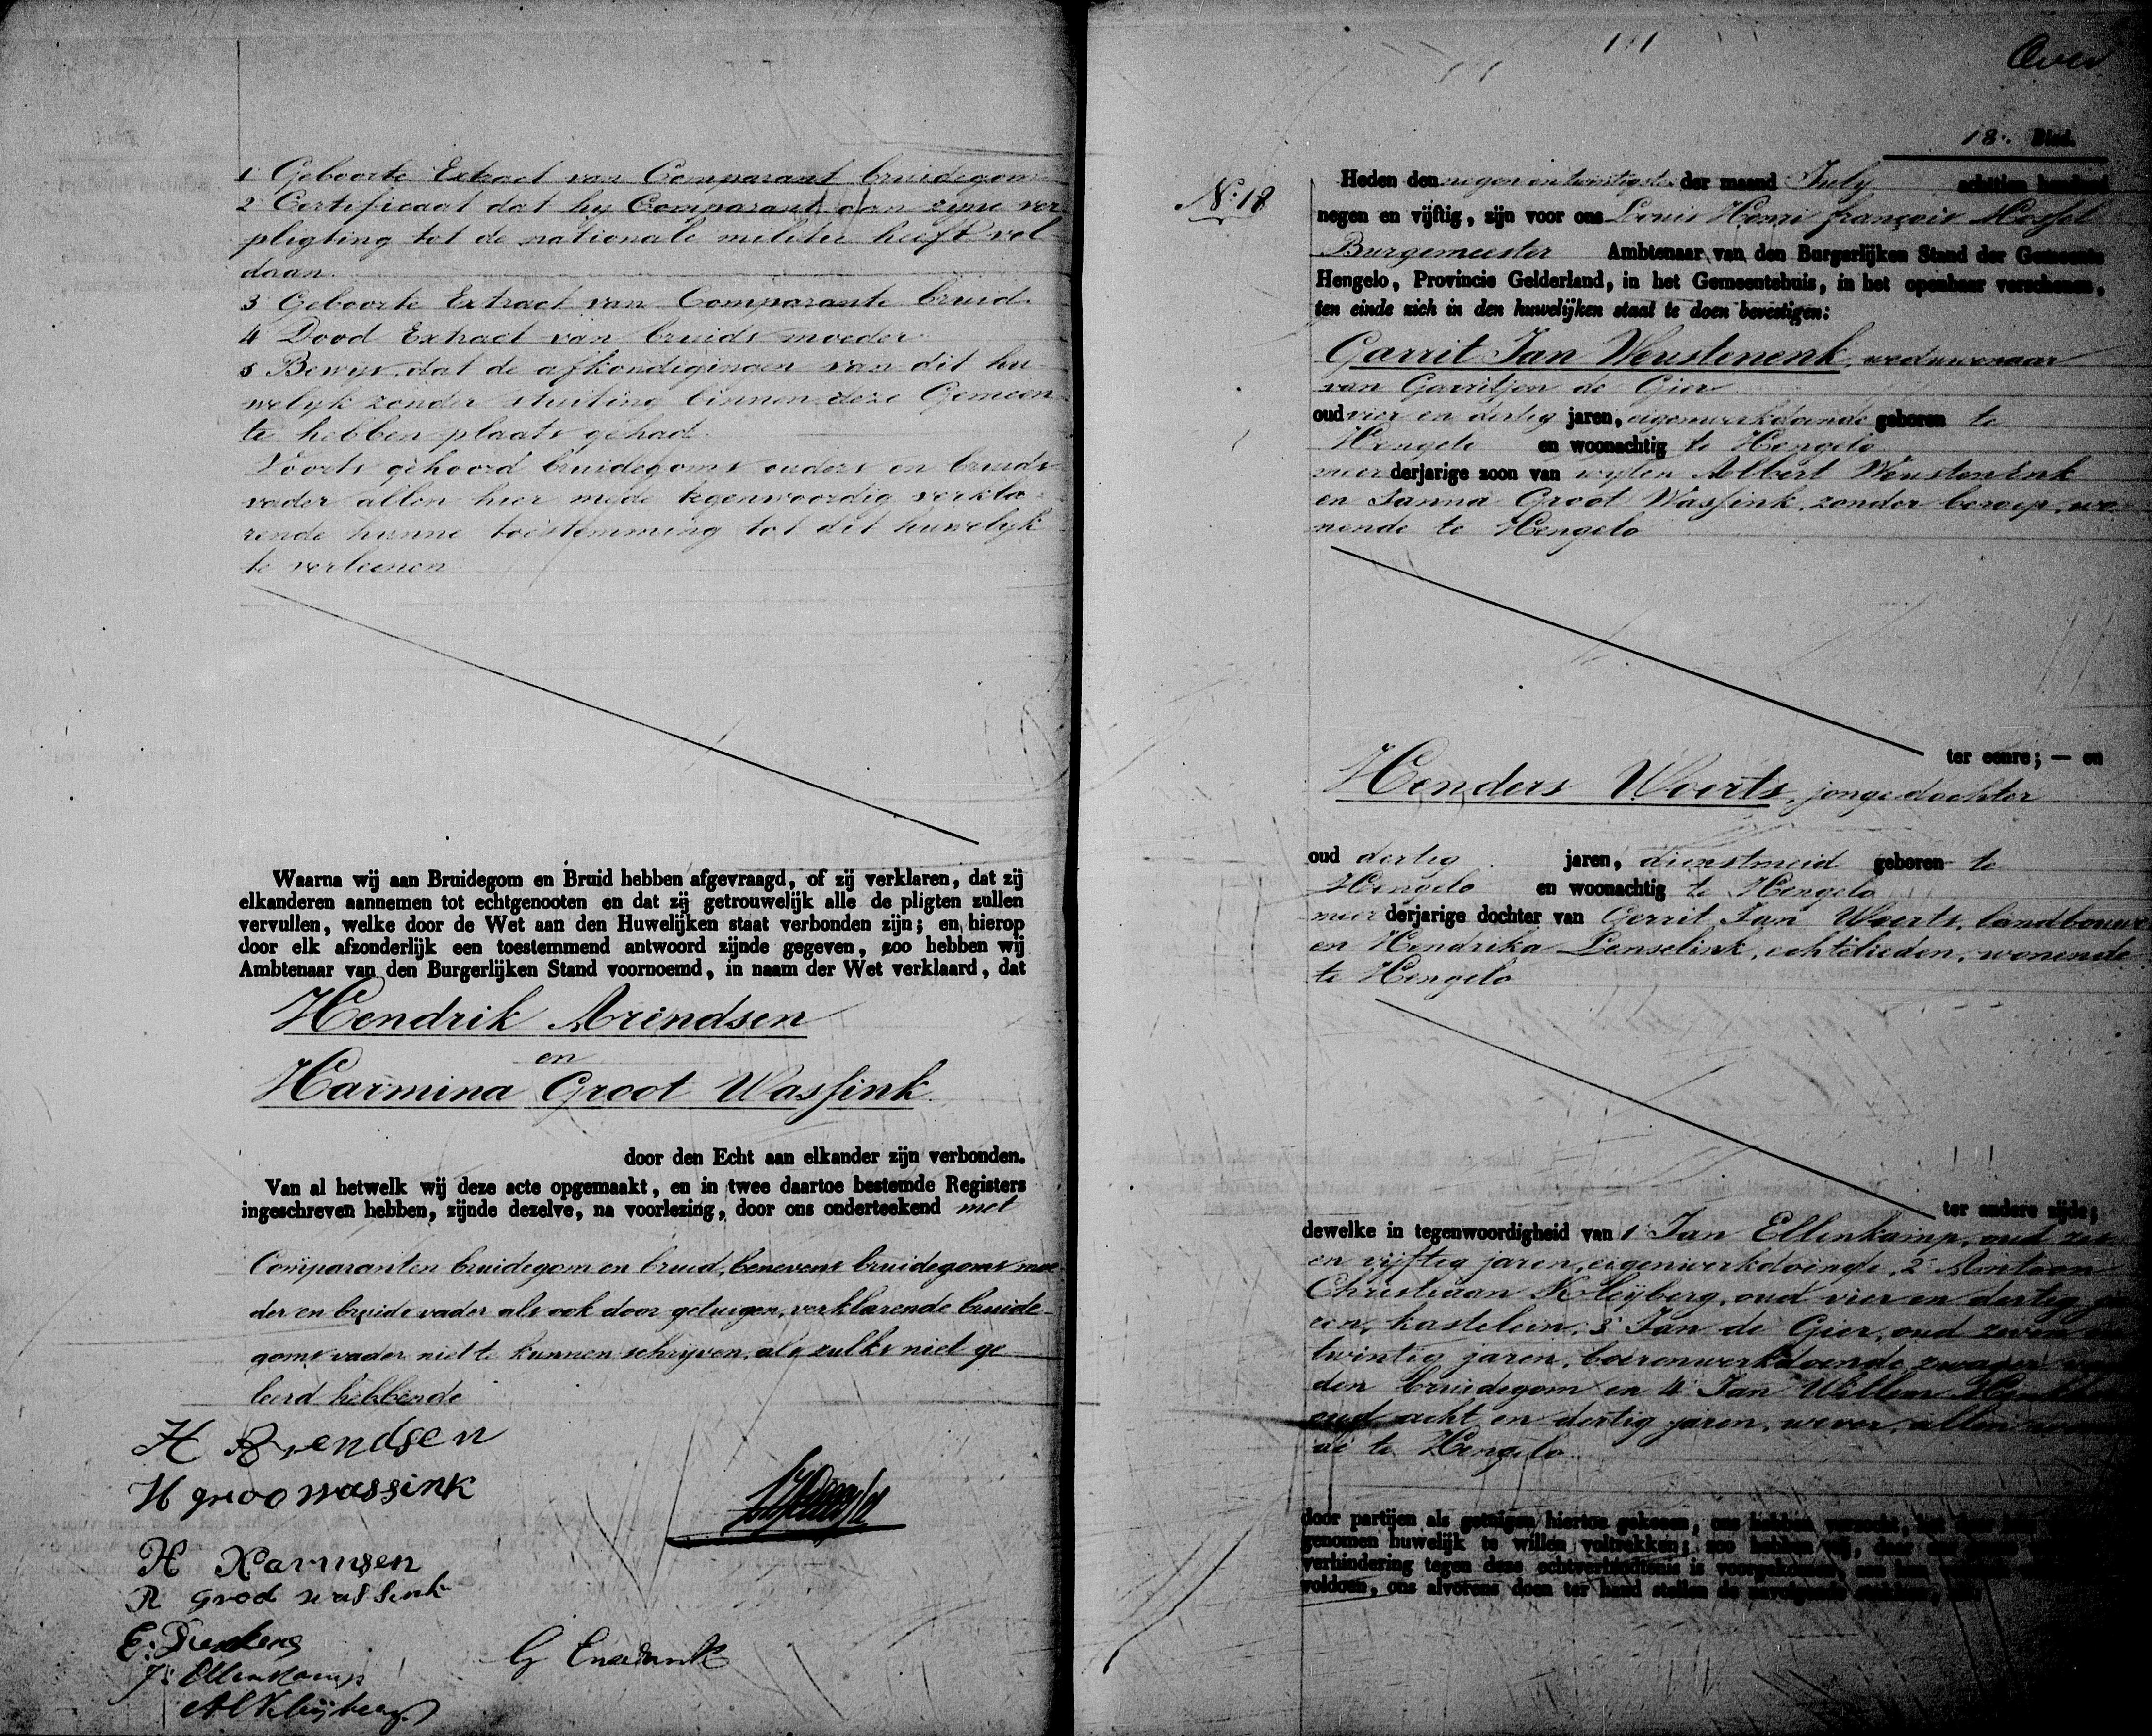 1° Geboorte Extract van Comparant bruidegom
2° Certificaat dat hy Comparant aan zyne ver
pligting tot de nationale militie heeft vol
daan.
3° Geboorte Extract van Comparante bruid.
4 Dood Extract van bruids moeder
5 Bewys dat de afkondigingen van dit hu
welyk zonder stuiting binnen deze Gemeen
te hebben plaats gehad.
Voorts gehoord bruidegoms ouders en bruids
vader allen hier mede tegenwoordig verkla-
rende hunne toestemming tot dit huwelyk
te verleenen
Waarna wij aan Bruidegom en Bruid hebben afgevraagd, of zij verklaren, dat zij
elkanderen aannemen tot echtgenooten en dat zij getrouwelijk alle de pligten zullen
vervullen, welke door de Wet aan den Huwelijken staat verbonden zijn; en hierop
door elk afzonderlijk een toestemmend antwoord zijnde gegeven, zoo hebben wij
Ambtenaar van den Burgerlijken Stand voornoemd, in naam der Wet verklaard, dat
Hendrik Arendsen
en
Harmina Groot Wassink
door den Echt aan elkander zijn verbonden.
Van al hetwelk wij deze acte opgemaakt, en in twee daartoe bestemde Registers
ingeschreven hebben, zijnde dezelve, na voorlezing, door ons onderteekend met
Comparanten bruidegom en bruid, benevens bruidegoms moe
der en bruids vader als ook door getuigen, verklarende bruide-
goms vader niet te kunnen schrijven, als zulks niet ge
leerd hebbende
H Arendsen
H groo wassink
H Harmsen
R Groo Wassink
J: Ellenkamp
A C Kleijberg
Over
18. Blad.
N: 18
Heden den negen en twintigsten der maand July achttien honderd
negen en vijftig, zijn voor ons Louis Henri françois Mossel
Burgemeester Ambtenaar van den Burgerlijken Stand der Gemeente
Hengelo, Provincie Gelderland, in het Gemeentehuis, in het openbaar verschenen,
ten einde zich in den huwelijken staat te doen bevestigen:
Garrit Jan Weustenenk, weduwenaar
van Garritjen de Gier
oud vier en dertig jaren, eigenwerkdoende geboren te
Hengelo en woonachtig te Hengelo
meerderjarige zoon van wylen Albert Weustenenk
en Janna Groot Wassink, zonder beroep, wo
nende te Hengelo
ter eenre; — en
Henders Woerts, jonge dochter
oud dertig jaren, dienstmeid geboren te
Hengelo en woonachtig te Hengelo
meerderjarige dochter van Gerrit Jan Woerts, landbouwer
en Hendrika Lenselink, echtelieden, wonende
te Hengelo
ter andere zijde;
dewelke in tegenwoordigheid van 1° Jan Ellenkamp, oud zes
en vijftig jaren, eigenwerkdoende, 2° Antoon
Christiaan Kleijberg, oud vier en dertig
kastelein, 3° Jan de Gier, oud zeven
twintig jaren, boerenwerkdoende, zwager
den bruidegom en 4° Jan Willem
oud acht en dertig jaren, wever, allen
de te Hengelo
door partijen als getuigen hiertoe gekozen, ons hebben verzocht,
genomen huwelijk te willen voltrekken; zoo hebben wij,
verhindering tegen deze echtverbindtenis is voorgekomen,
voldoen, ons alvorens doen ter hand stellen de